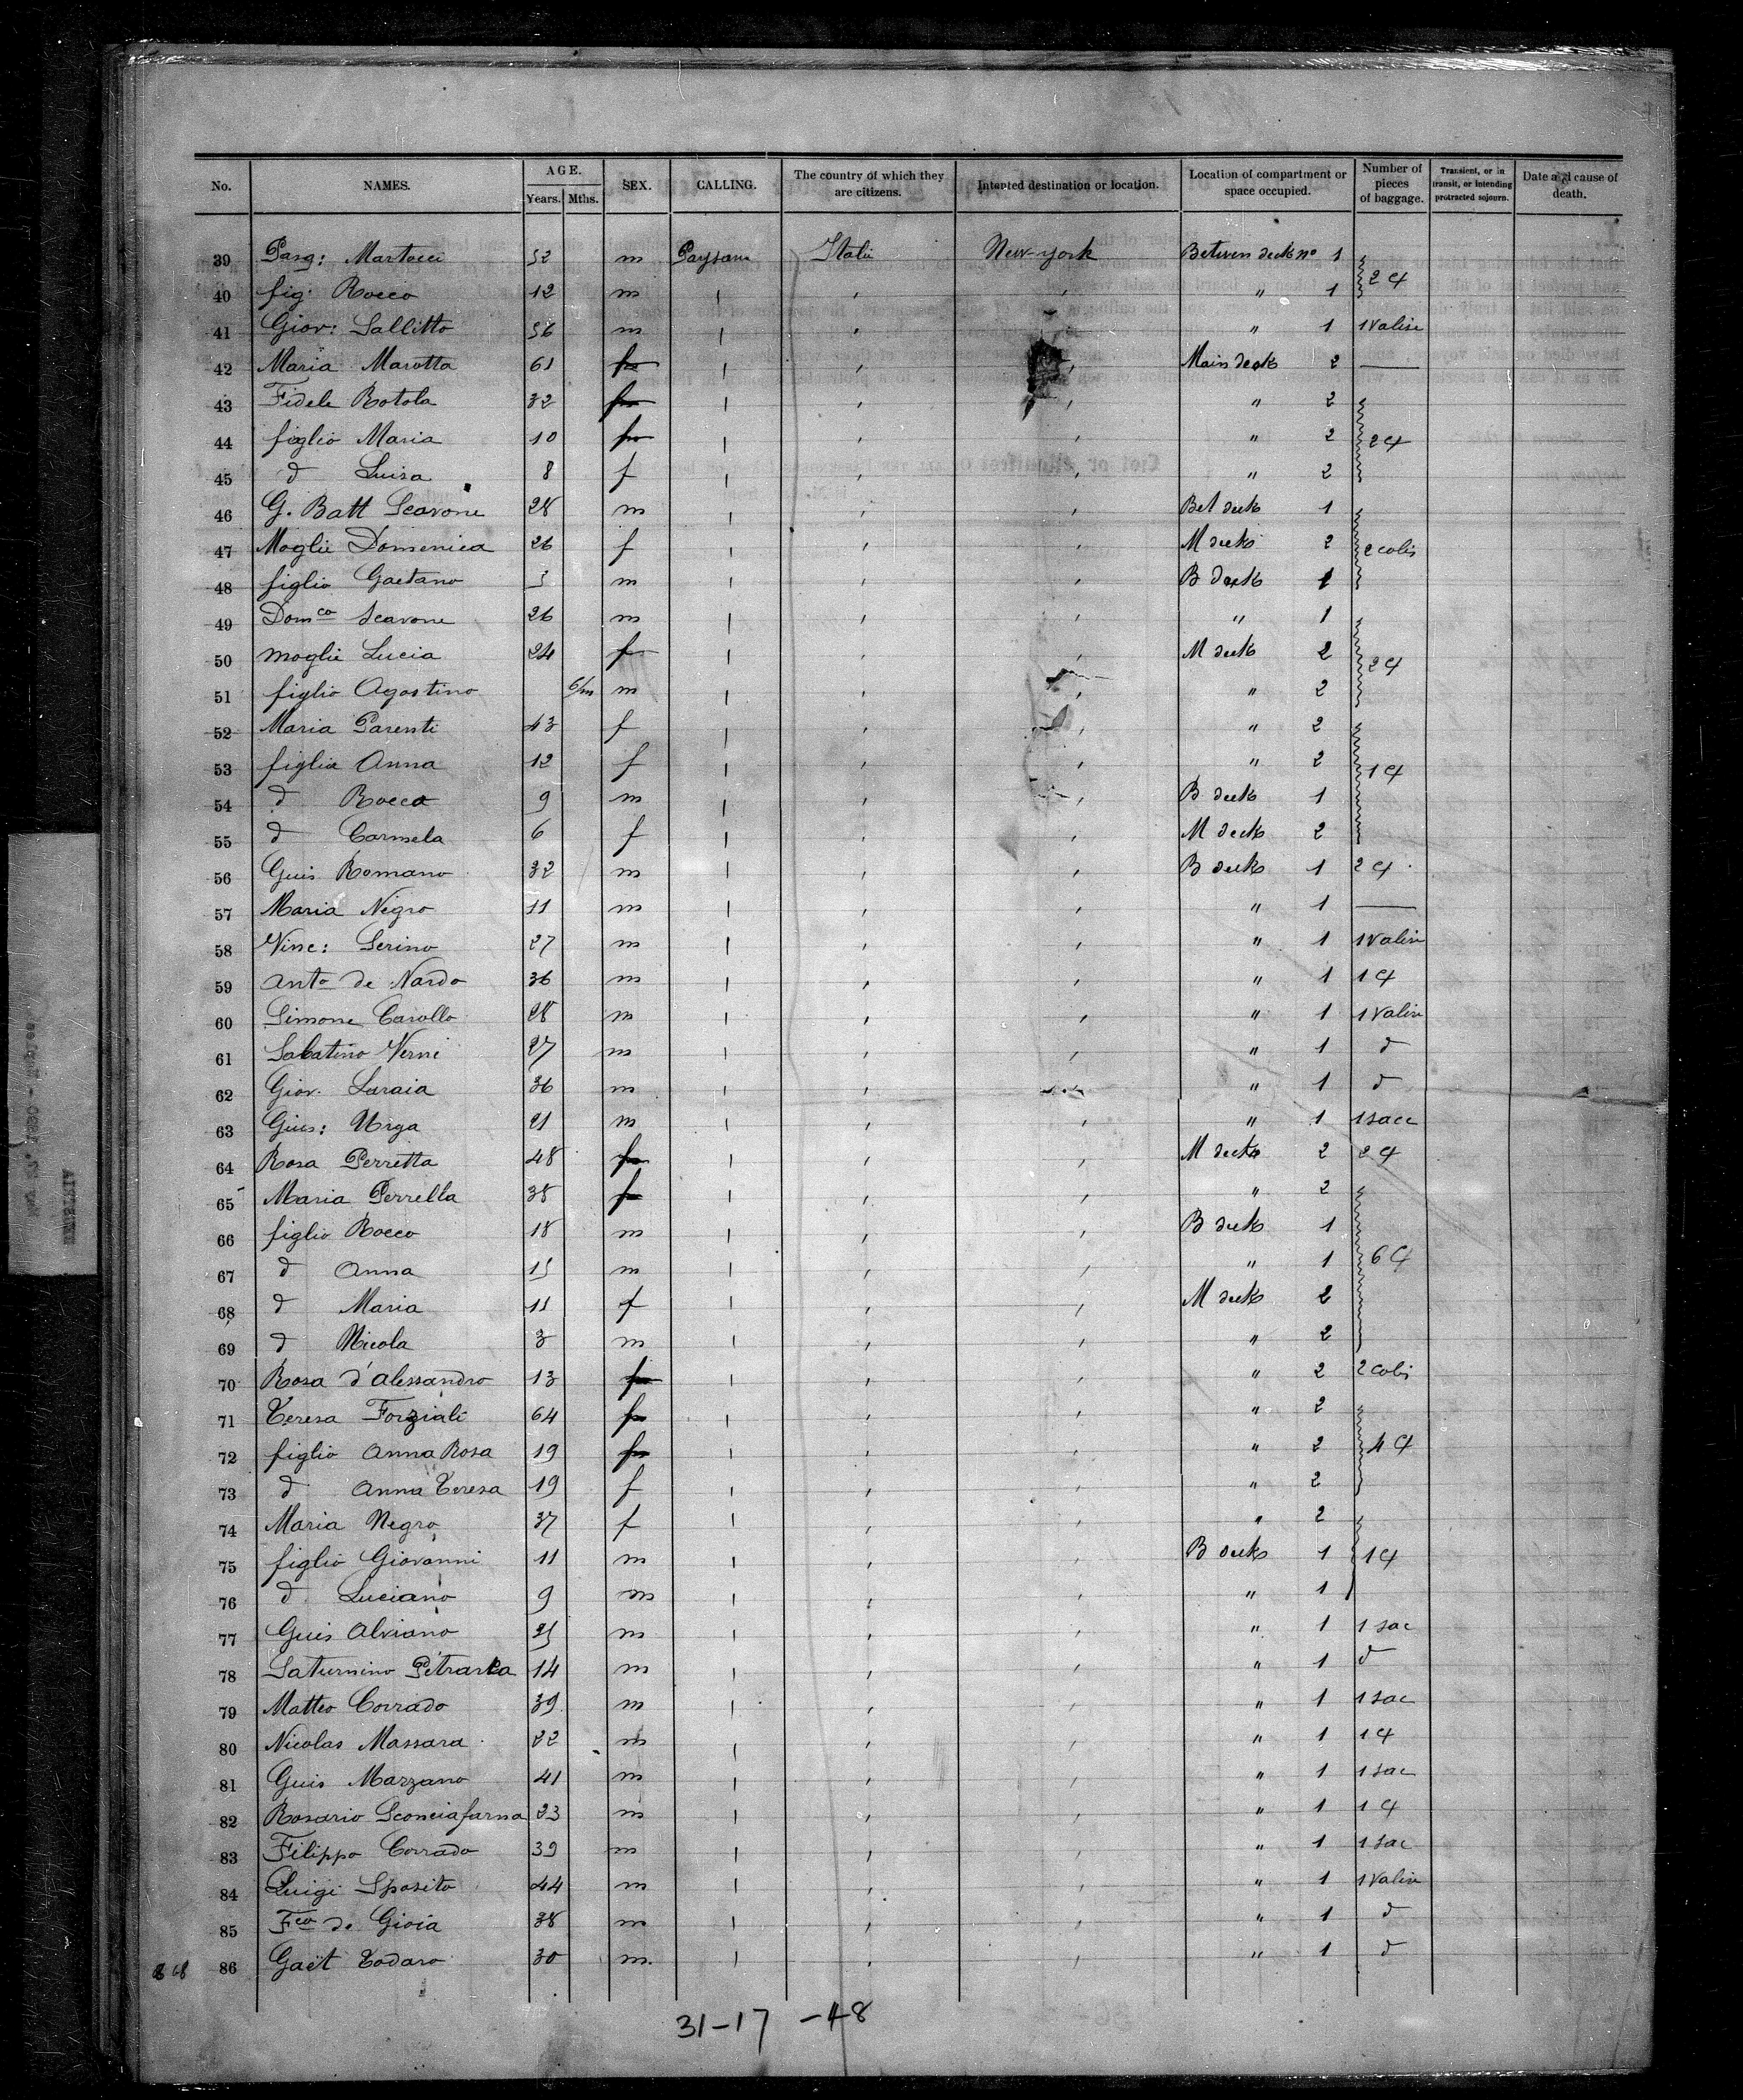 No. NAMES. AGE. Years. Mths. SEX. CALLING. The country of which they are citizens. Intented destination or location. Location of compartment or space occupied. Number of pieces of baggage. Transient, or in transit, or intending protracted sojourn. Date and cause of death.
39 Pasq: Martocci 52 m Paysans Italie New-york Betwen deck no 1
40 fig. Rocco 12 m " 1 2 C/
41 Giov: Sallitto 56 m " 1 1 Valise
42 Maria Marotta 61 f Main deck 2 —
43 Fidele Rotola 32 f " 2
44 figlio Maria 10 f " 2 2 C/
45 d Luisa 8 f " 2
46 G. Batt Scavone 28 m Bet deck 1
47 Moglie Domenica 26 f M deck 2 2 colis
48 figlio Gaetano 3 m B deck 1
49 Domco Scavone 26 m " 1
50 moglie Lucia 24 f M deck 2 2 C/
51 figlio Agostino 6/m m " 2
52 Maria Parenti 43 f " 2
53 figlia Anna 12 f " 2 1 C/
54 d Rocco 9 m B deck 1
55 d Carmela 6 f M deck 2
56 Guis Romano 32 m B deck 1 2 C/
57 Maria Nigro 11 m " 1 —
58 Vinc: Serino 27 m " 1 1 Valise
59 Anto de Nardo 36 m " 1 1 C/
60 Simone Carollo 28 m " 1 1 Valise
61 Sabatino Verni 27 m " 1 d
62 Giov. Laraia 36 m " 1 d
63 Gius: Urga 21 m " 1 1 sacc
64 Rosa Perretta 48 f M deck 2 2 C/
65 Maria Perrella 38 f " 2
66 figlio Rocco 18 m B deck 1
67 d Anna 15 m " 1 6 C/
68 d Maria 11 f M deck 2
69 d Nicola 3 m " 2
70 Rosa d'Alessandro 13 f " 2 2 colis
71 Teresa Forziali 64 f " 2
72 figlio Anna Rosa 19 f " 2 4 C/
73 d Anna Teresa 19 f " 2
74 Maria Negro 37 f " 2
75 figlio Giovanni 11 m B deck 1 1 C/
76 d Luciano 9 m " 1
77 Guis Alviano 25 m " 1 1 sac
78 Saturnino Petrarka 14 m " 1 d
79 Matteo Corrado 39 m " 1 1 sac
80 Nicolas Massara 22 m " 1 1 C/
81 Guis Marzano 41 m " 1 1 sac
82 Rosario Sconciafarna 23 m " 1 1 C/
83 Filippo Corrado 39 m " 1 1 sac
84 Luigi Sposito 44 m " 1 1 Valise
85 Fco de Gioia 38 m " 1 d
86 Gaët Todaro 30 m. " 1 d
31-17 -48